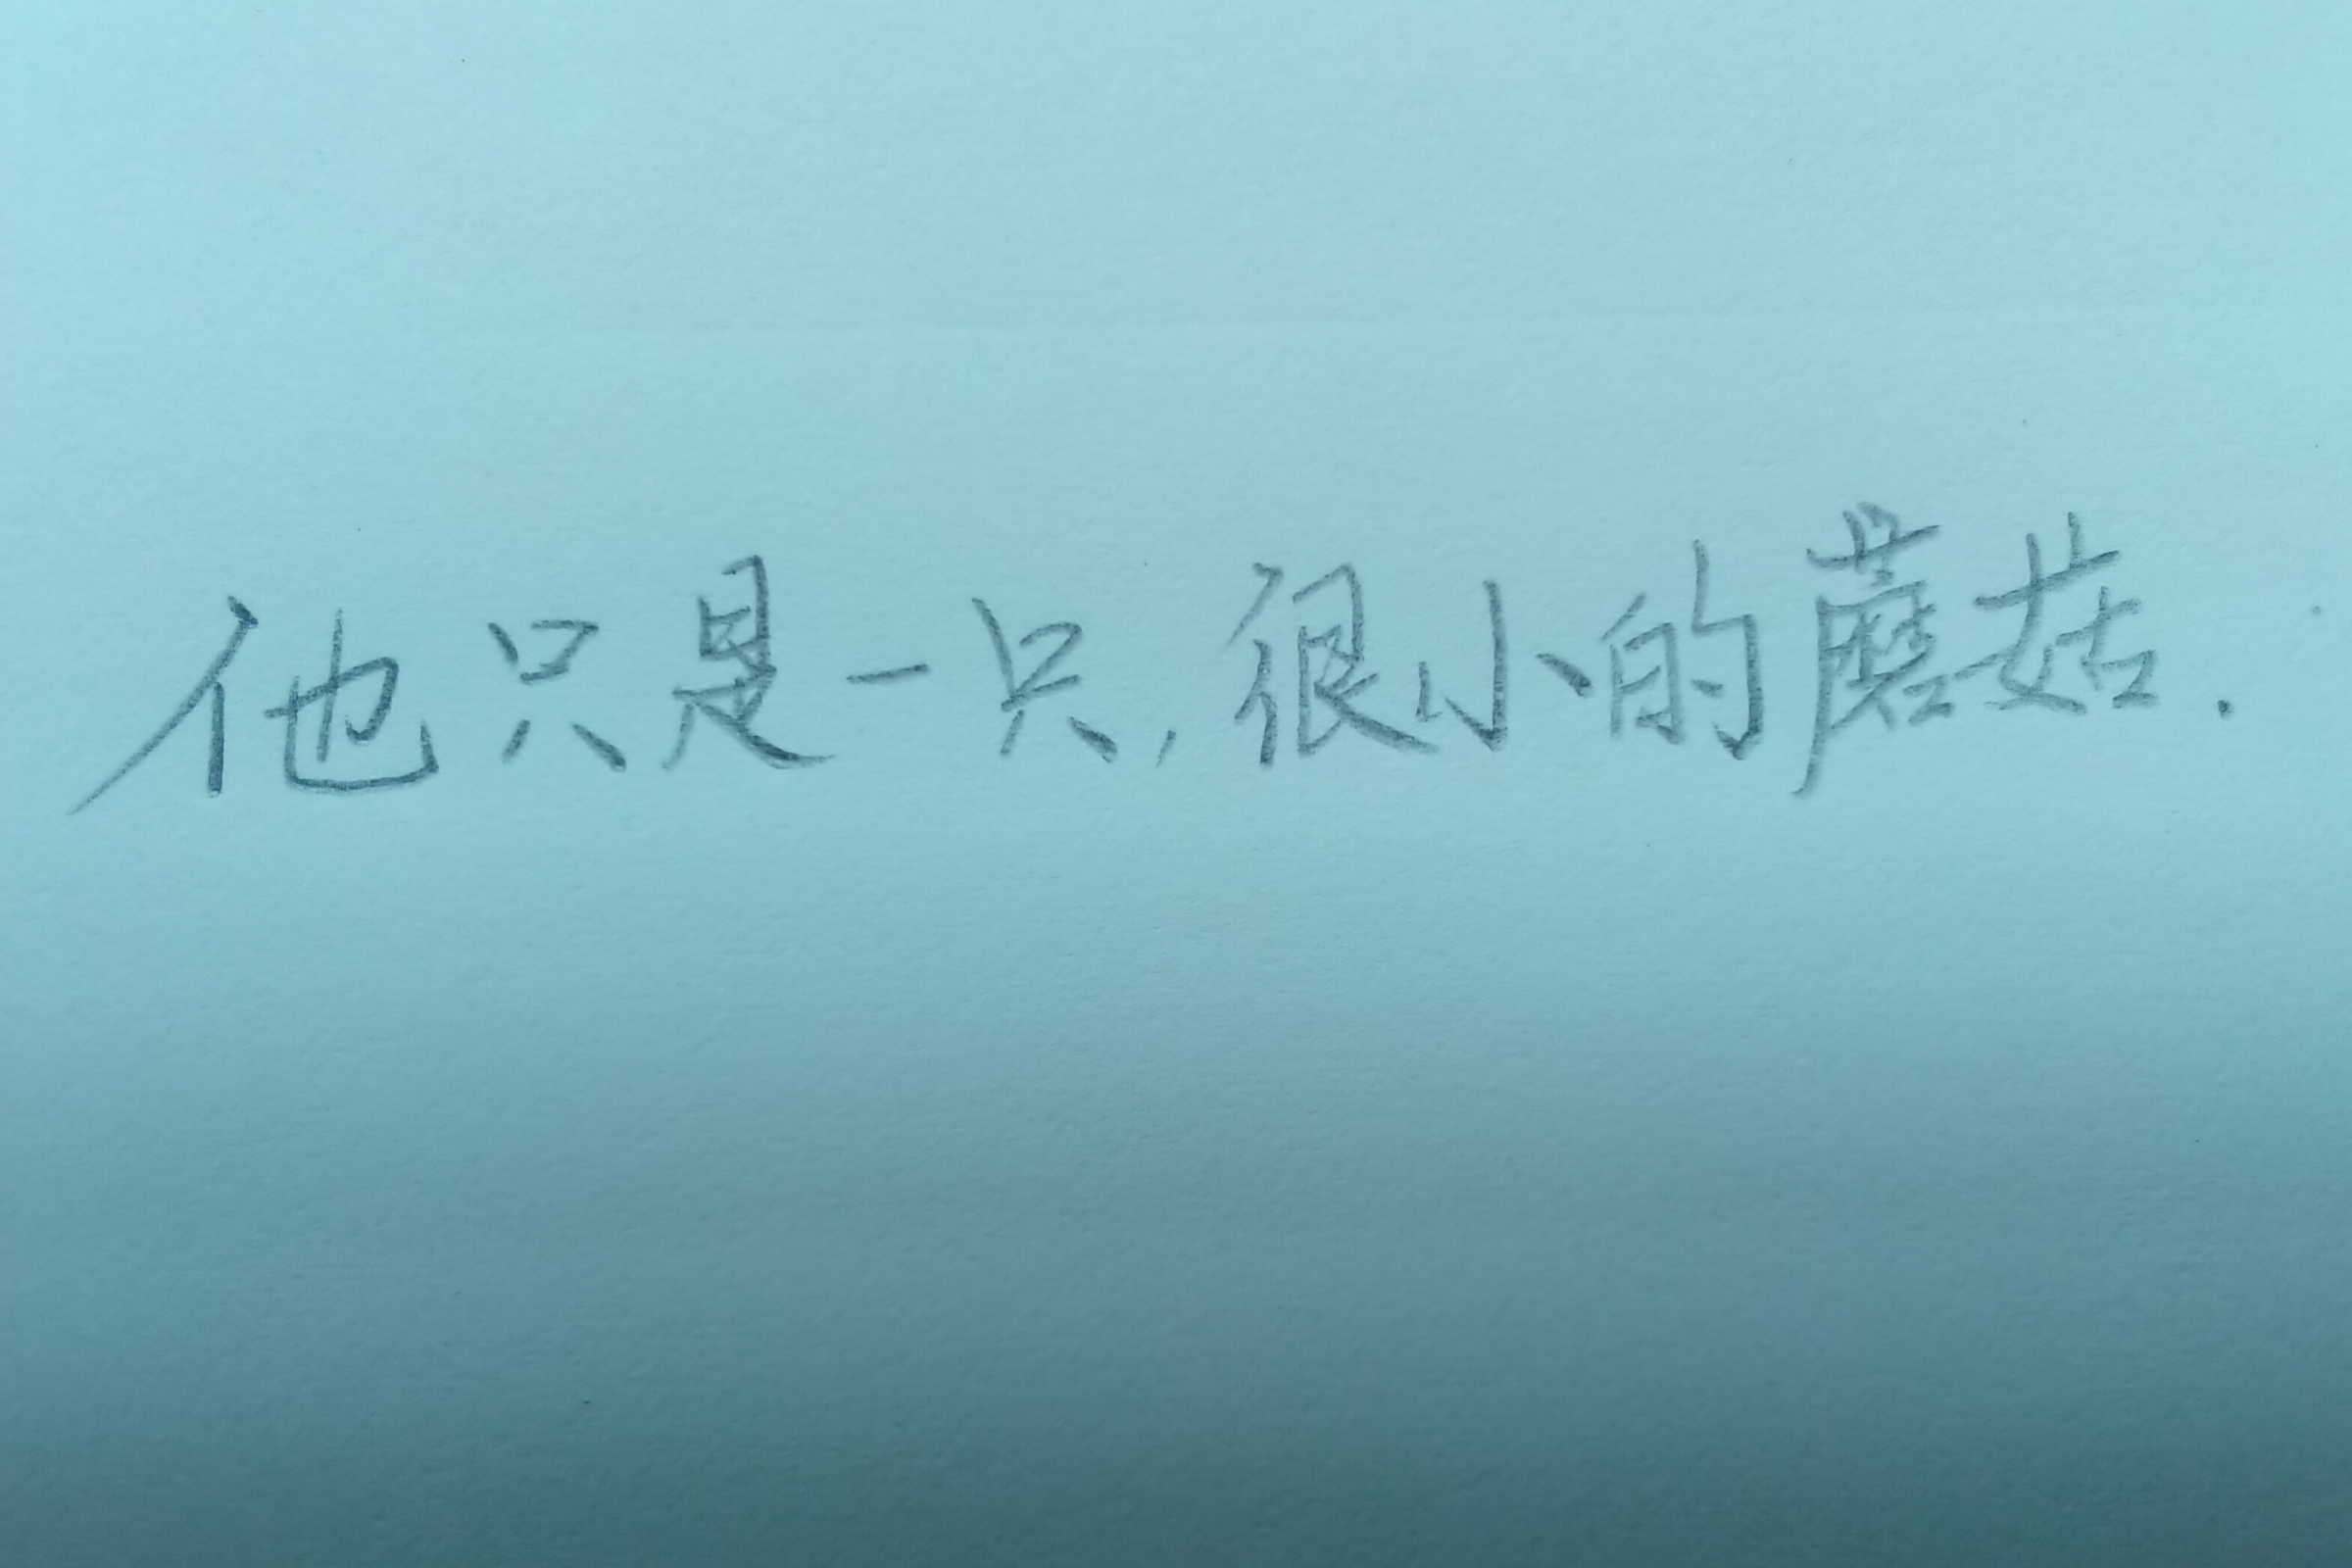 他只是一只,很小的蘑菇.